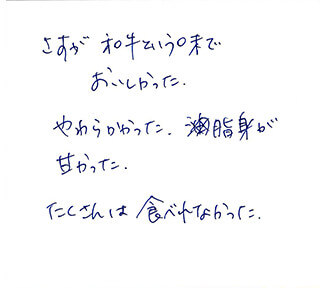 さすが 和牛という味で
おいしかった.
やわらかかった. 脂身が
甘かった.
たくさんは 食べれなかった.